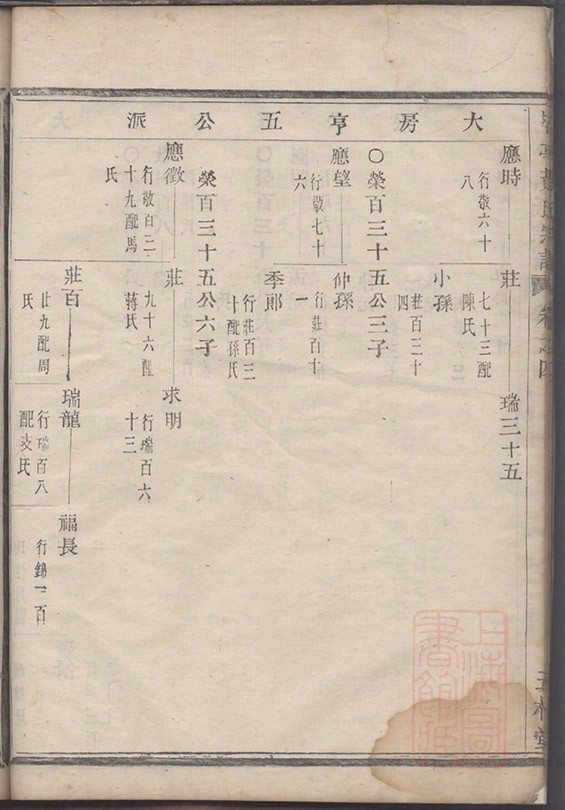 大房亨五公派
應時
行敬六十
八
莊
七十三配
陳氏
瑞三十五
小孫
莊百三十
四
○榮百三十五公三子
應望
行敬七十
六
仲孫
行莊百十
一
季郎
行莊百三
十配孫氏
○榮百三十五公六子
應徵
行敬百二
十九配馬
氏
莊
九十六配
蔣氏
求明
行瑞百六
十三
莊百
廿九配周
氏
瑞龍
行瑞百八
配支氏
福長
行錦一百
卷之四
上海圖書館藏